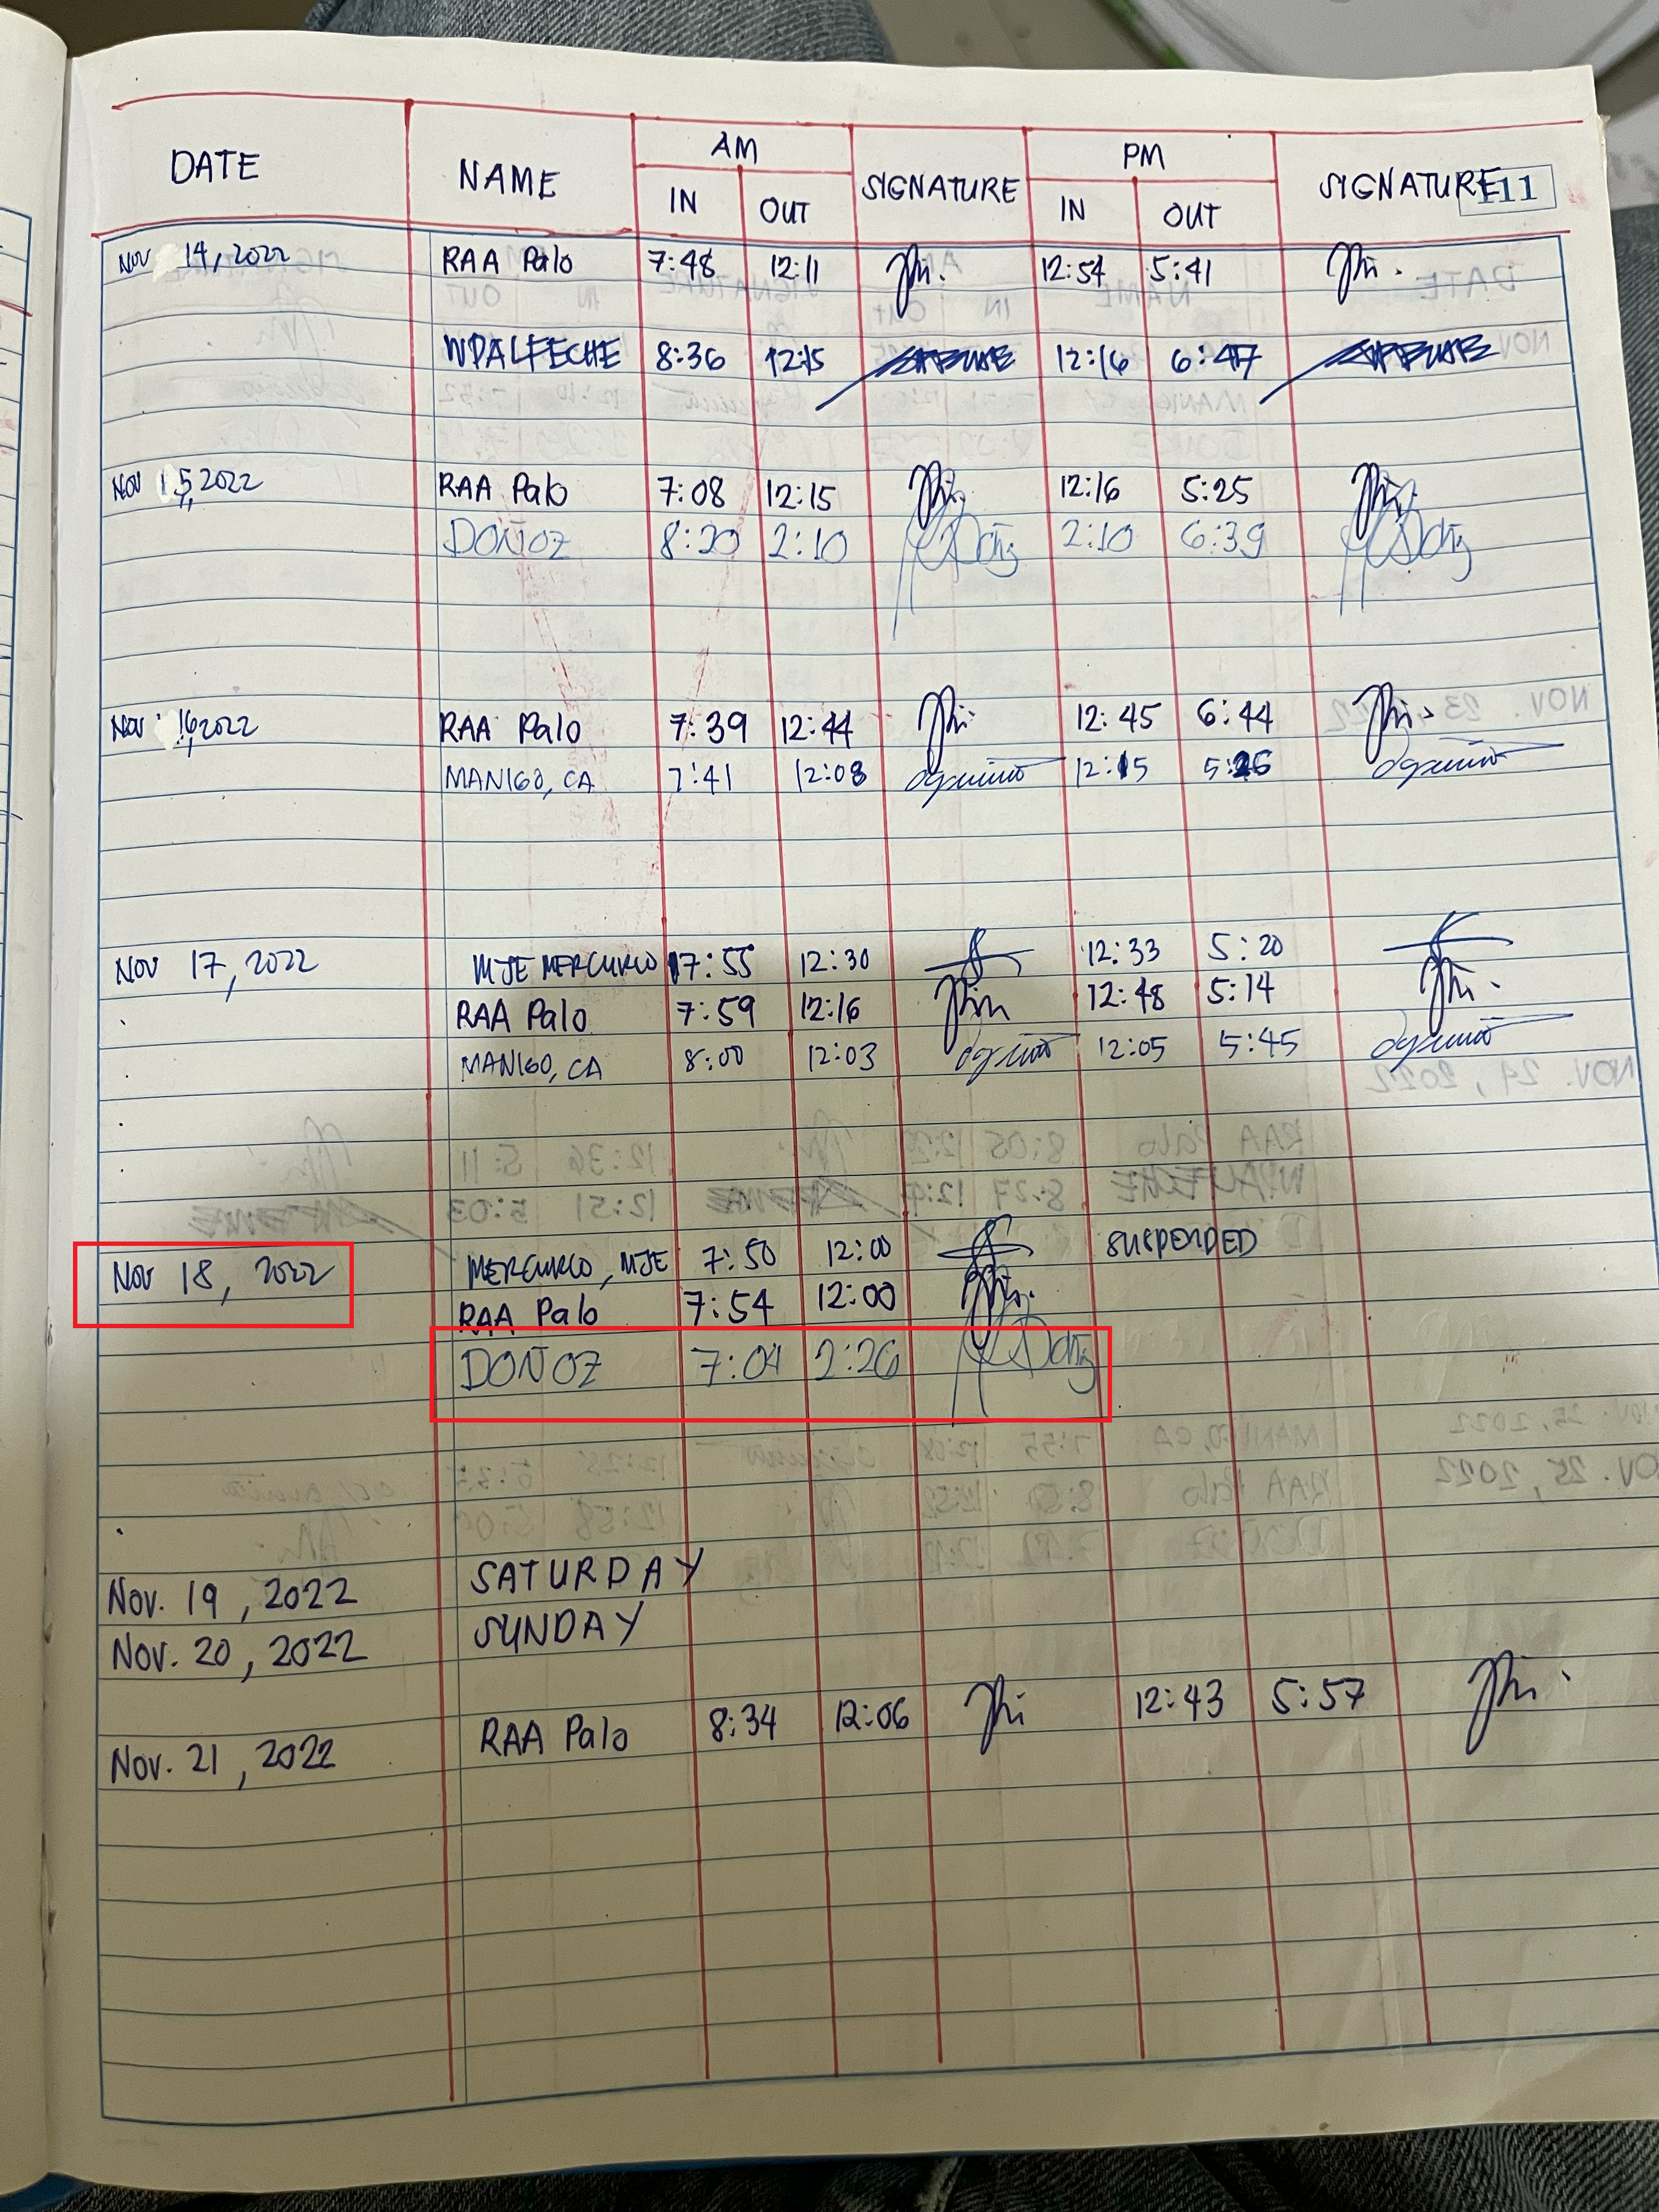 DATE NAME AM SIGNATURE PM SIGNATURE 111
IN OUT IN OUT
NOV 14, 2022 RAA Palo 7:48 12:11 12:54 5:41
WPALFECHE 8:36 12:15 12:16 6:47
NOV 15, 2022 RAA Palo 7:08 12:15 12:16 5:25
DOÑOZ 8:20 2:10 2:10 6:39
NOV 16, 2022 RAA Palo 7:39 12:44 12:45 6:44
MANIGO, CA 7:41 12:08 12:15 5:26
NOV 17, 2022 MJE MERCURIO 7:55 12:30 12:33 5:20
RAA Palo 7:59 12:16 12:48 5:14
MANIGO, CA 8:00 12:03 12:05 5:45
NOV 18, 2022 MERCURIO, MJE 7:50 12:00 SUSPENDED
RAA Palo 7:54 12:00
DOÑOZ 7:04 2:26
Nov. 19, 2022 SATURDAY
Nov. 20, 2022 SUNDAY
Nov. 21, 2022 RAA Palo 8:34 12:06 12:43 5:57